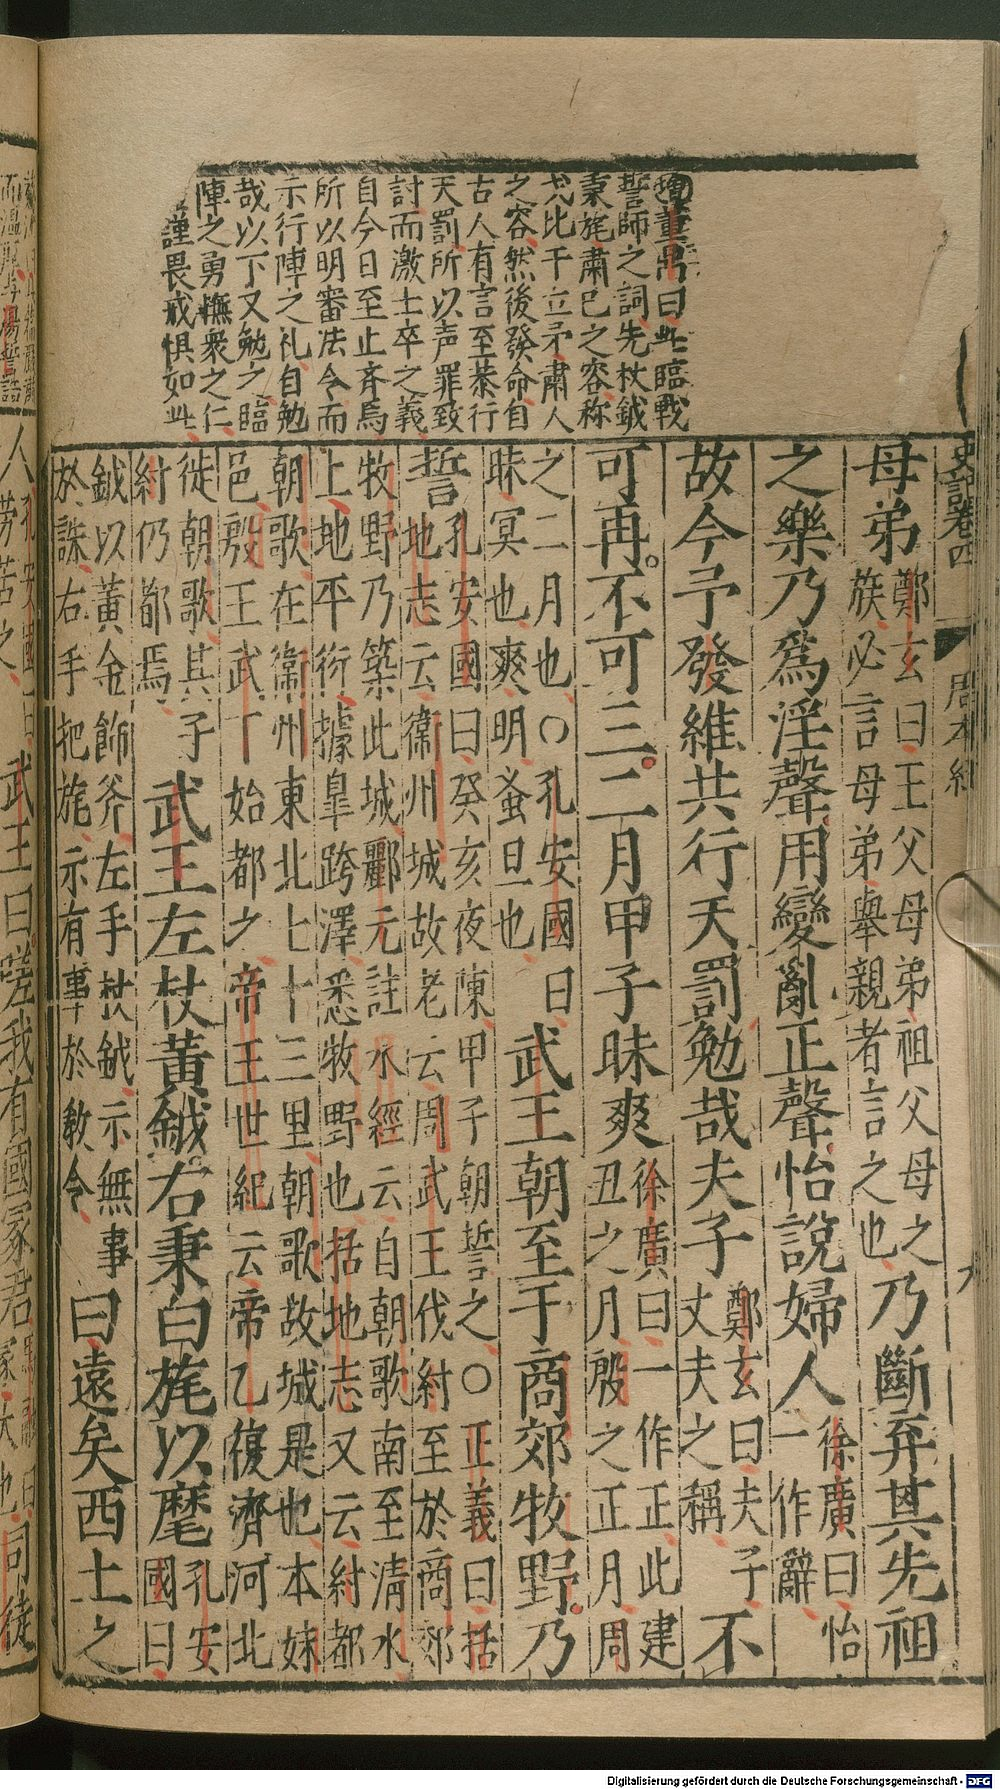 董鼎曰此臨戰
誓師之詞先杖鉞
秉旄肅已之容称
戈比干立矛肅人
之容然後發命自
古人有言至恭行
天罰所以声罪致
討而激士卒之義
自今日至止齐焉
所以明審法令而
示行陣之礼自勉
哉以下又勉之臨
陣之勇撫衆之仁
謹畏戒惧如此
史記卷四
周本紀
母弟
鄭玄曰王父母弟祖父母之
族必言母弟舉親者言之也
乃斷弃其先祖
之樂乃爲淫聲用變亂正聲怡說婦人
徐廣曰怡
一作辭
故今予發維共行天罰勉哉夫子
鄭玄曰夫子
丈夫之稱
不
可再不可三二月甲子昧爽
徐廣曰一作正此建
丑之月殷之正月周
之二月也〇孔安國曰
昧冥也爽明蚤旦也
武王朝至于商郊牧野乃
誓
孔安國曰癸亥夜陳甲子朝誓之〇正義曰括
地志云衛州城故老云周武王伐紂至於商郊
牧野乃築此城酈元註水經云自朝歌南至清水
上地平衍據皐跨澤悉牧野也括地志又云紂都
朝歌在衛州東北七十三里朝歌故城是也本妹
邑殷王武丁始都之帝王世紀云帝乙復濟河北
徙朝歌其子
紂仍都焉
武王左杖黃鉞右秉白旄以麾
孔安
國曰
鉞以黃金飾斧左手杖鉞示無事
於誅右手把旄示有事於教令
曰遠矣西土之
人
武王曰嗟我有國冢君
司徒
Digitalisierung gefördert durch die Deutsche Forschungsgemeinschaft - DFG